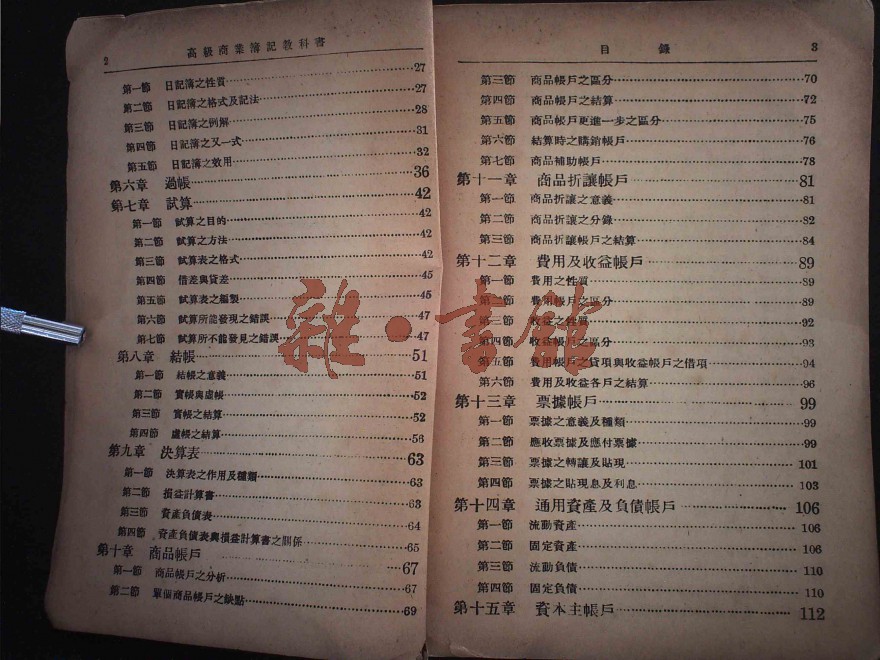 2
高級商業簿記教科書
第一節 日記簿之性質 27
第二節 日記簿之格式及記法 27
第三節 日記簿之例解 28
第四節 日記簿之又一式 31
第五節 日記簿之效用 32
第六章 過帳 36
第七章 試算 42
第一節 試算之目的 42
第二節 試算之方法 42
第三節 試算表之格式 42
第四節 借差與貸差 45
第五節 試算表之編製 45
第六節 試算所能發現之錯誤 47
第七節 試算所不能發見之錯誤 47
第八章 結帳 51
第一節 結帳之意義 51
第二節 實帳與虛帳 52
第三節 實帳之結算 52
第四節 虛帳之結算 56
第九章 決算表 63
第一節 決算表之作用及種類 63
第二節 損益計算書 63
第三節 資產負債表 64
第四節 資產負債表與損益計算書之關係 65
第十章 商品帳戶 67
第一節 商品帳戶之分析 67
第二節 單個商品帳戶之缺點 69
目錄
3
第三節 商品帳戶之區分 70
第四節 商品帳戶之結算 72
第五節 商品帳戶更進一步之區分 75
第六節 結算時之購銷帳戶 76
第七節 商品補助帳戶 78
第十一章 商品折讓帳戶 81
第一節 商品折讓之意義 81
第二節 商品折讓之分錄 82
第三節 商品折讓帳戶之結算 84
第十二章 費用及收益帳戶 89
第一節 費用之性質 89
第二節 費用帳戶之區分 89
第三節 收益之性質 92
第四節 收益帳戶之區分 93
第五節 費用帳戶之貸項與收益帳戶之借項 94
第六節 費用及收益各戶之結算 96
第十三章 票據帳戶 99
第一節 票據之意義及種類 99
第二節 應收票據及應付票據 99
第三節 票據之轉讓及貼現 101
第四節 票據之貼現息及利息 103
第十四章 通用資產及負債帳戶 106
第一節 流動資產 106
第二節 固定資產 106
第三節 流動負債 110
第四節 固定負債 110
第十五章 資本主帳戶 112
雜·書館